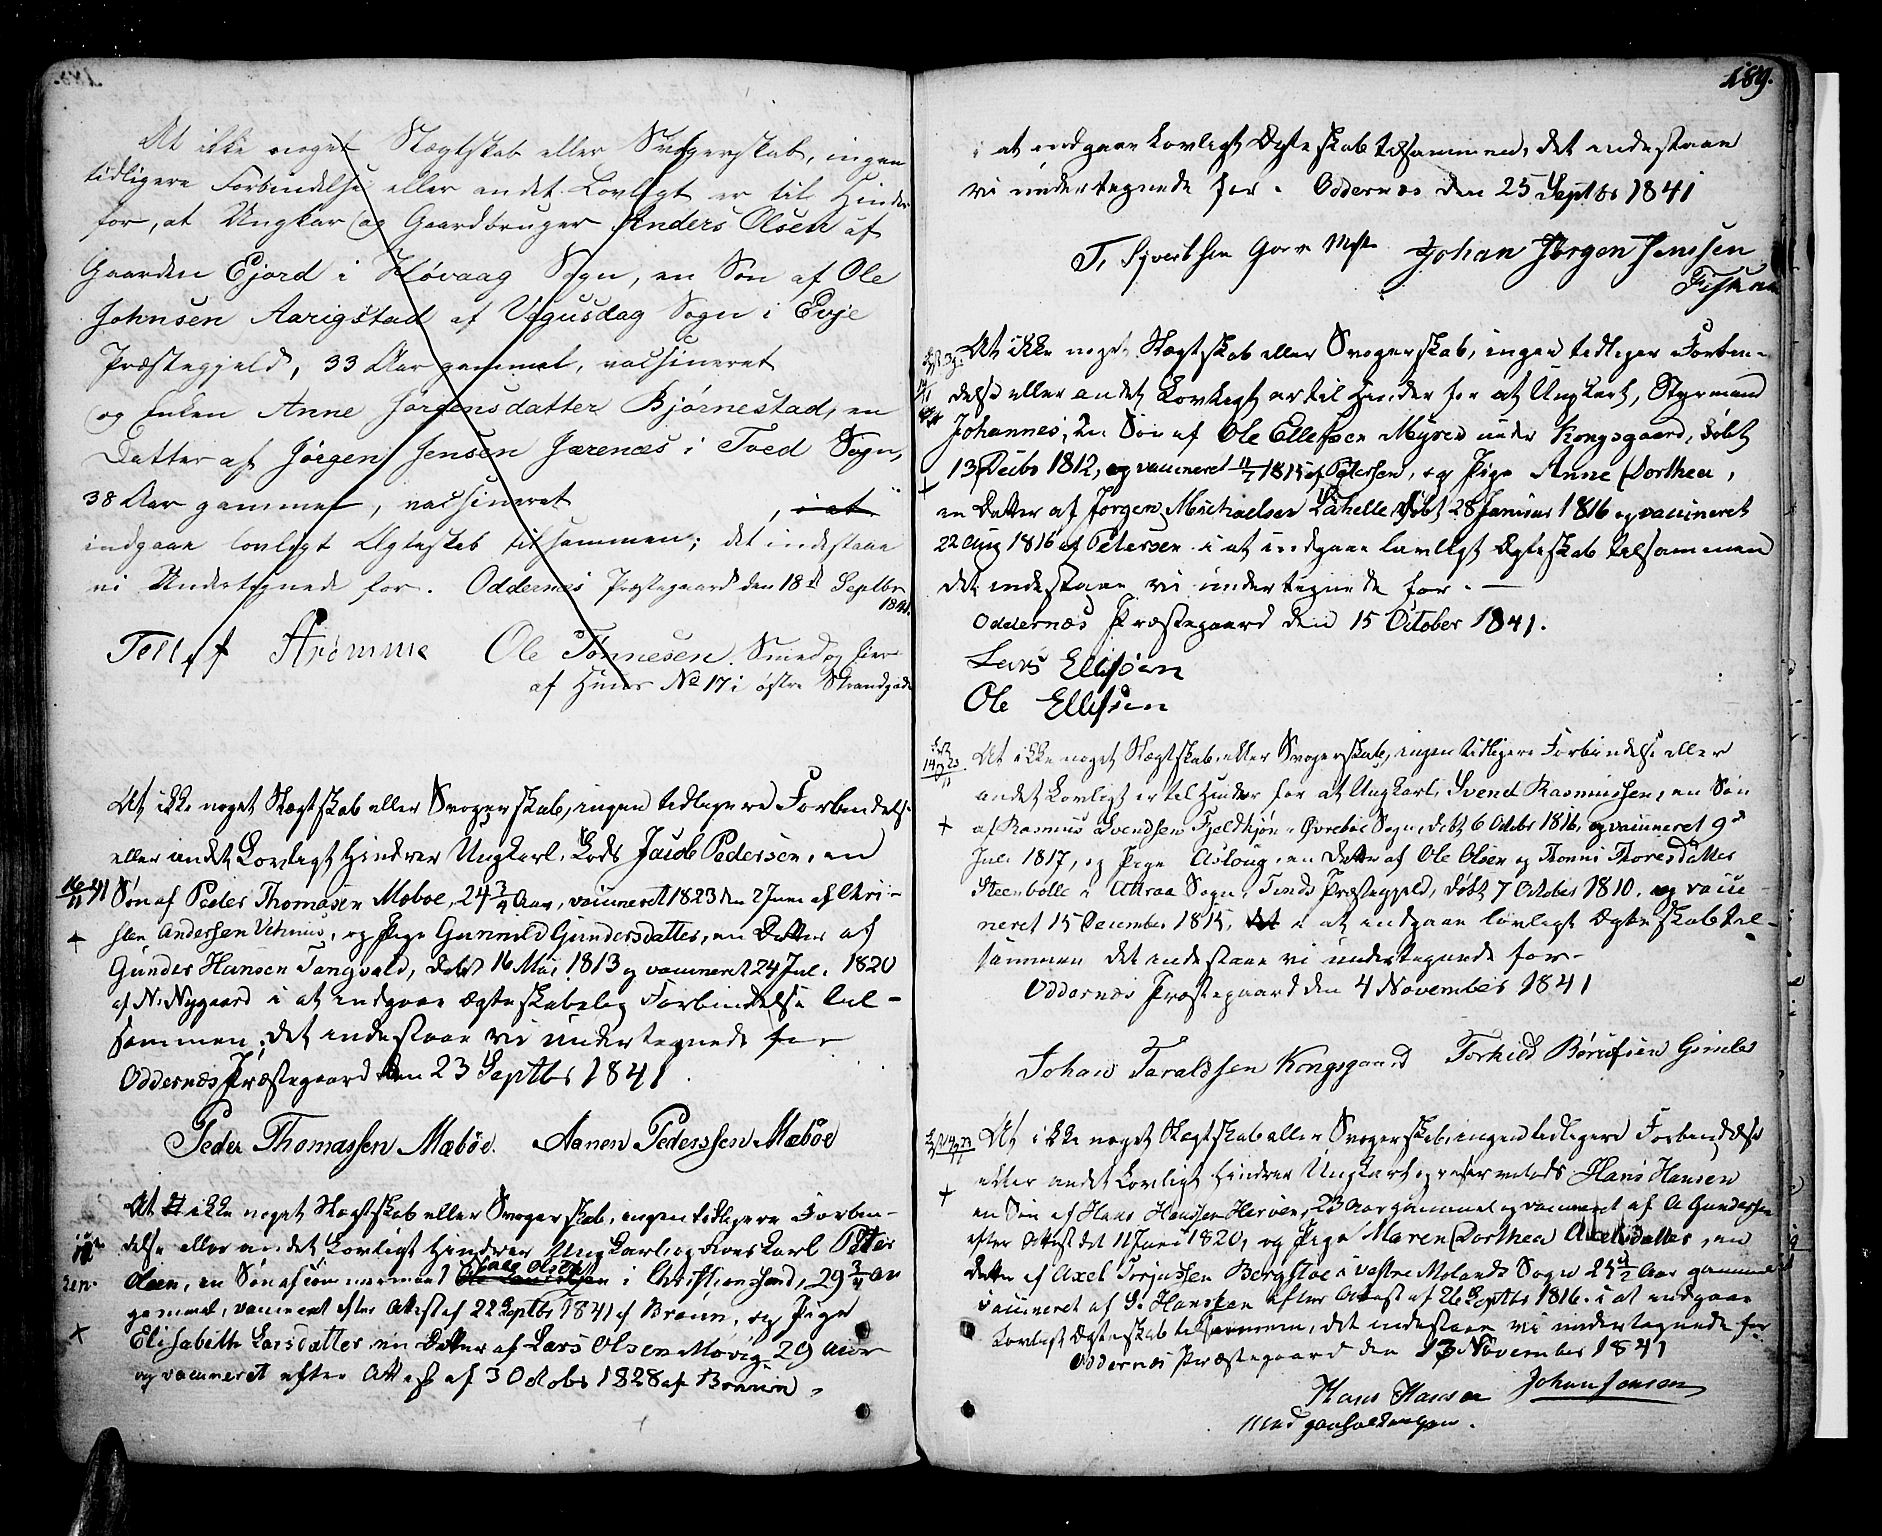 At ikke noget Slægtskab eller Svogerskab, ingen
tidligere Forbindelse eller andet Lovligt er til Hinder
for, at Ungkar og Gaardbruger Anders Olsen af
Gaarden Ejord i Høvaag Sogn, en Søn af Ole
Johnsen Aarigstad af Vegusdag Sogn i Evje
Præstegjeld, 33 Aar gammel, vacsineret
og Enken Anne Jørgensdatter Bjørnestad, en
Datter af Jørgen Jensen Jærenæs i Tved Sogn,
38 Aar gammel, vacsineret , i at
indgaae lovligt Ægteskab tilsammen; det indestaae
vi Undertegnede for. Oddernes Præstegaard den 18d Septbr
1841.
Tellef Strømme Ole Tønnesen. Smed og Eier
af Huus No 17 i østre Strandgade
At ikke noget Slægtskab eller Svogerskab, ingen tidligere Forbindelse
eller andet Lovligt hindrer Ungkarl, Lods Jacob Pedersen, en
16/11 41 Søn af Peder Thomasen Mæboe, 24 3/4 Aar, vaccineret 1823 den 2 Juni af Chri-
sten Andersen , og Pige Gunnild Gundersdatter, en Datter af
+
Gunder Hansen Tangvald, døbt 16 Mai 1813 og vaccineret 24 Juli 1820
af N. Nygaard i at indgaae Ægteskabelig Forbindelse til-
sammen, det indestaae vi undertegnede for
Oddernæs Præstegaard den 23 Septbr 1841.
Peder Thomassen Mæbøe. Aanen Pederssen Mæbøe
At ikke noget Slægtskab eller Svogerskab, ingen tidligere Forbin-
delse eller andet Lovligt hindrer Ungkarl, og Peter
Olsen, en Søn af Lars Olsen i Christianssand, 29 3/4 Aar
gammel, vaccineret efter Attest af 22 Septbr 1841 af Bruun, og Pige
+
Elisabeth Larsdatter, en Datter af Lars Olsen Møvig, 29 Aar
og vaccineret efter Attest af 3 Octobr 1828 af Bruun,
189.
i at indgaae Lovligt Ægteskab tilsammen, det indestaae
vi undertegnede for. Oddernæs den 25 Septbr 1841
T. Syvertsen Johan Jørgen Jenssen
At ikke noget Slægtskab eller Svogerskab, ingen tidligere Forbin-
delse eller andet Lovligt er til Hinder for at Ungkarl, Styrmand
Johannes, en Søn af Ole Ellefsen Myren under Kongsgaard, døbt
13 Decbr 1812, og vaccineret 1815 af Petersen, og Pige Anne Dorthea,
+
en Datter af Jørgen Michaelsen Lahelle, døbt 28 Januar 1816 og vaccineret
22 Aug 1816 af Petersen i at indgaae lovligt Ægteskab tilsammen
det indestaae vi undertegnede for. —
Oddernæs Præstegaard den 15 October 1841.
Lars Ellefsen
Ole Ellefsen
At ikke noget Slægtskab eller Svogerskab, ingen tidligere Forbindelse eller
andet Lovligt er til Hinder for at Ungkarl Svend Rasmussen, en Søn
+
af Rasmus Svendsen Fjeldkjøn i Øvrebøe Sogn, døbt 6 Octobr 1816, og vaccineret 9d
Juli 1817, og Pige Aslaug, en Datter af Ole Olsen og Thoresdatter
Steenbolle i Attraa Sogn, Tinds Præstegjeld, døbt 7 October 1810, og vacci-
neret 15 December 1815, i at indgaae lovligt Ægteskab til-
sammen det indestaae vi undertegnede for
Oddernæs Præstegaard den 4 November 1841
Johan Taraldsen Kongsgaard Torkild Gimlee
At ikke noget Slægtskab eller Svogerskab, ingen tidligere Forbindelse
eller andet Lovligt hindrer Ungkarl og reservelods Hans Hansen
+
en Søn af Hans Hanssen Herøen, 23 Aar gammel og vaccineret af A Gundersen
efter Attest det 11 Juni 1820, og Pige Maren Dorthea Axelsdatter, en
Datter af Axel Torjussen Bergstøe i vestre Molands Sogn 25 1/2 Aar gammel
vaccineret af S. Hanssen efter Attest af 26 Septbr 1816. i at indgaae
Lovligt Ægteskab tilsammen, det indestaae vi undertegnede for
Oddernæs Præstegaard den 13 November 1841
Hans Hansen Johan Jensen